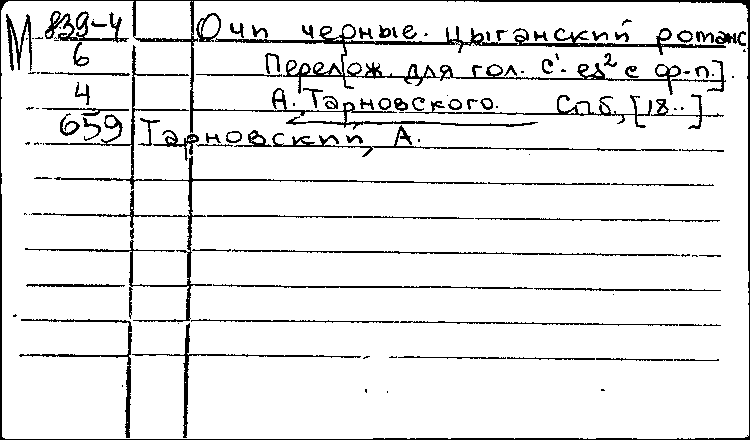 М 839-4 Очи черные. Цыганский романс
6 Перелож. [для гол. c¹-es² с ф-п.]
4 А. Тарновского. Спб., [18..]
659 Тарновский, А.